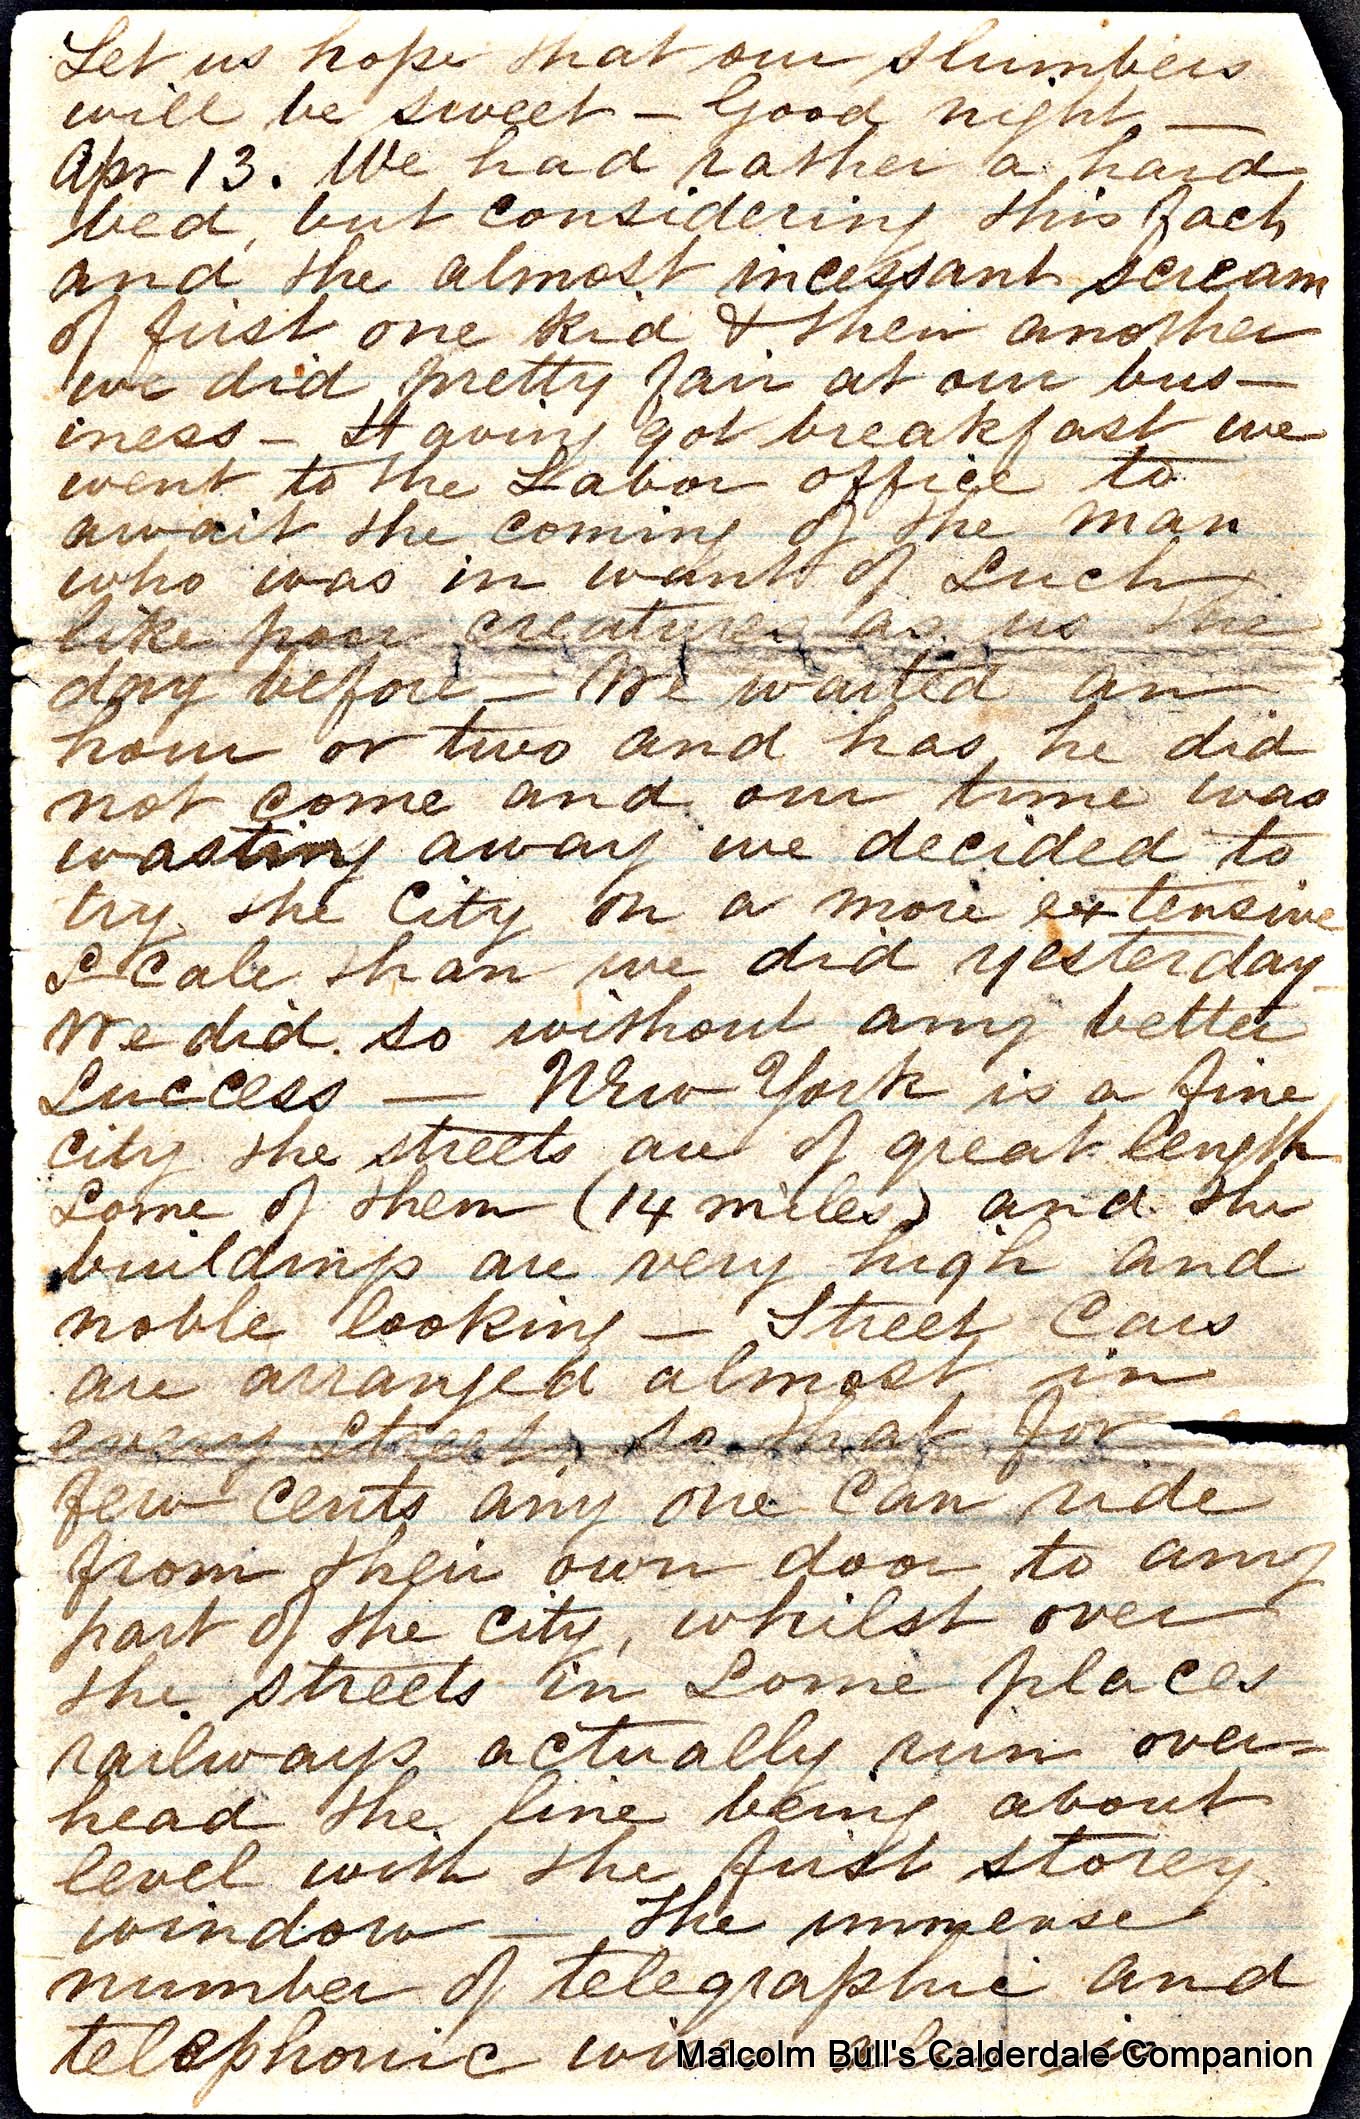 Let us hope that our slumbers
will be sweet – Good night –
Apr 13. We had rather a hard
bed, but considering this fact
and the almost incessant scream
of first one kid & then another
we did pretty fair at our bus-
iness – Having got breakfast we
went to the Labor office to
await the coming of the man
who was in want of such
like poor creatures as us the
day before – We waited an
hour or two and has he did
not come and our time was
wasting away we decided to
try the City on a more extensive
scale than we did yesterday
We did so without any better
success — New York is a fine
city the streets are of great length
some of them (14 miles) and the
buildings are very high and
noble looking – Street Cars
are arranged almost in
every street, so that for
few cents any one can ride
from their own door to any
part of the city, whilst over
the streets in some places
railways actually run over-
head the line being about
level with the first storey
window – The immense
number of telegraphic and
telephonic
Malcolm Bull's Calderdale Companion